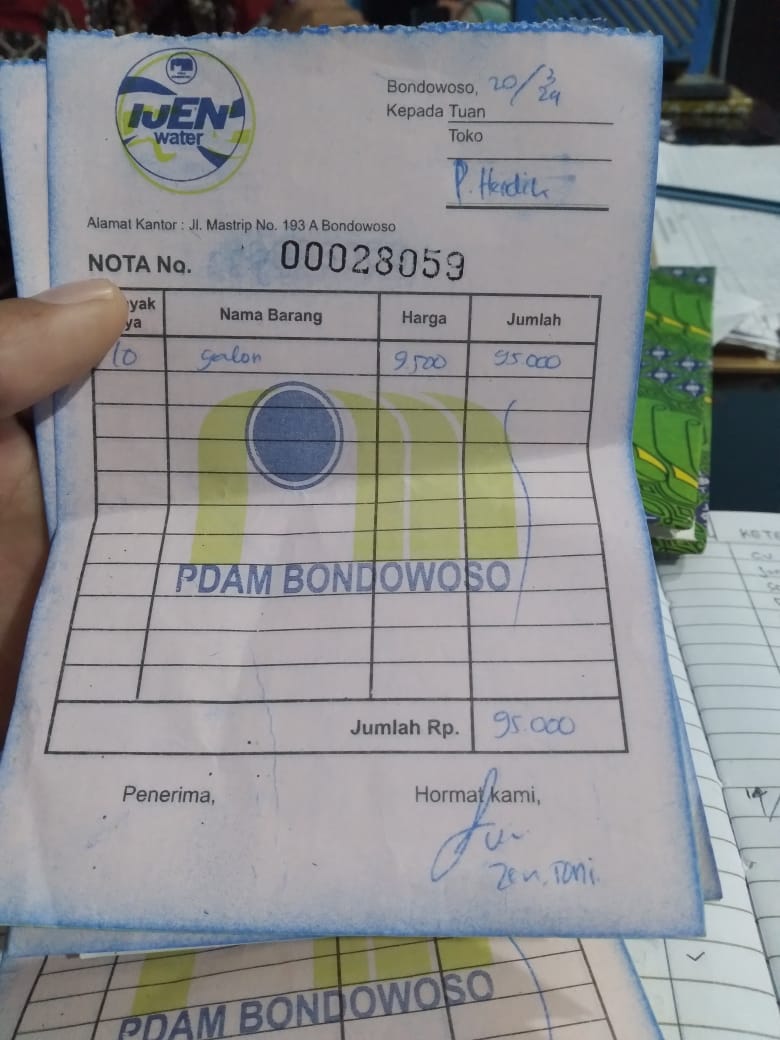 IJEN
water
Bondowoso, 20/3/24
Kepada Tuan
Toko
P. Herdik
Alamat Kantor : Jl. Mastrip No. 193 A Bondowoso
NOTA No. 00028059
yak
ya
Nama Barang Harga Jumlah
10 galon 9.500 95.000
PDAM BONDOWOSO
Jumlah Rp. 95.000
Penerima, Hormat kami,
PDAM BONDOWOSO